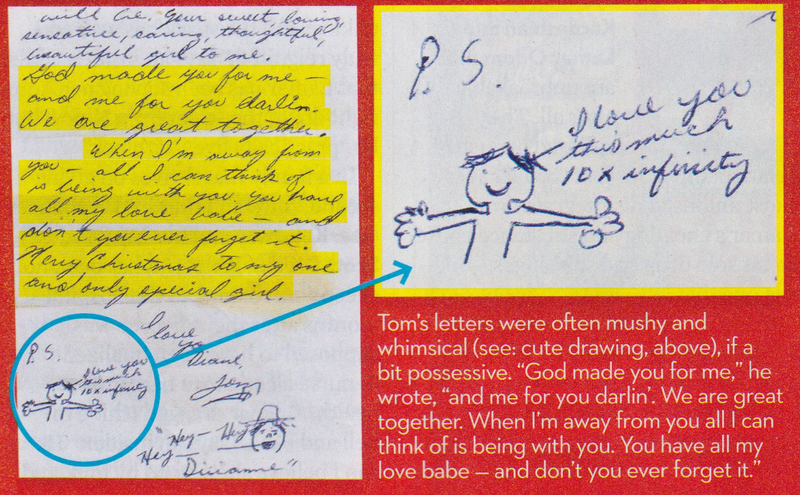 will be. Your sweet, loving,
sensative, caring, thoughtful,
beautiful girl to me.
God made you for me –
and me for you darlin.
We are great together.
When I'm away from
you – all I can think of
is being with you. you have
all my love babe – and
don't you ever forget it.
Merry Christmas to my one
and only special girl.
I love
you
Diane,
Tom
P.S.
I love you
this much
10 x infinity
"Hey – Hey
Hey –
Diiianne"
P.S.
I love you
this much
10 x infinity
Tom's letters were often mushy and
whimsical (see: cute drawing, above), if a
bit possessive. "God made you for me," he
wrote, "and me for you darlin'. We are great
together. When I'm away from you all I can
think of is being with you. You have all my
love babe — and don't you ever forget it."